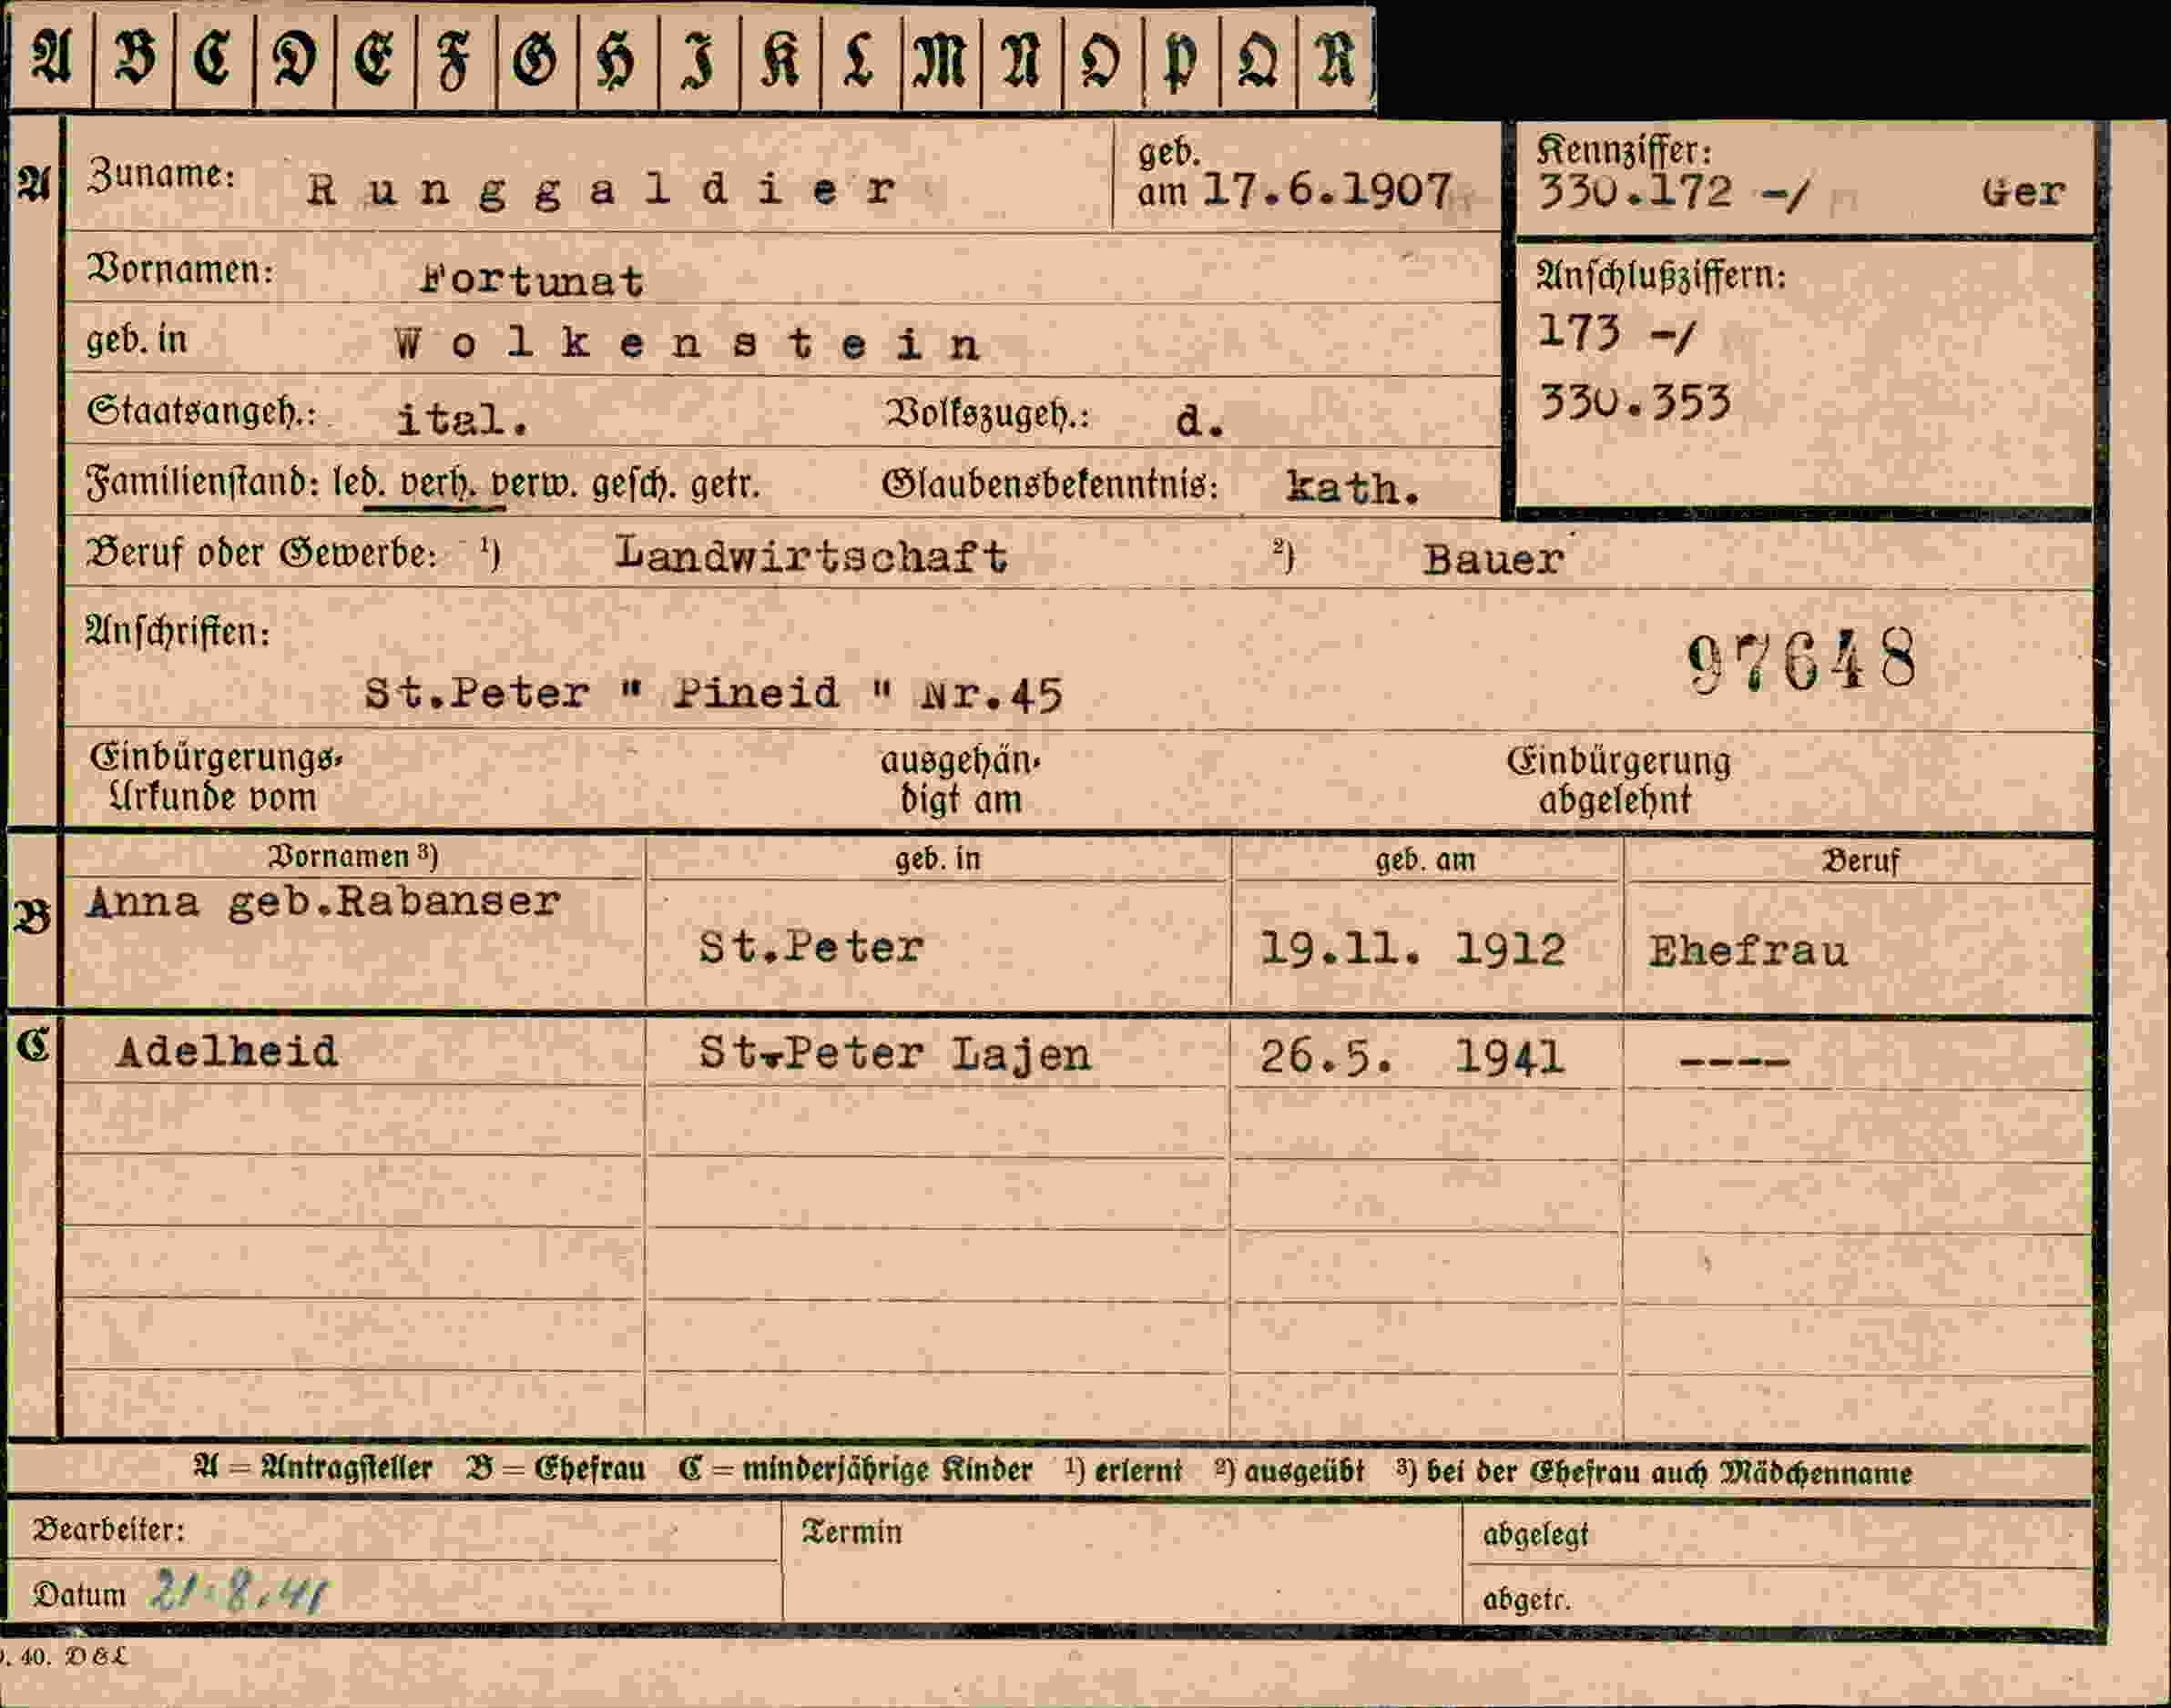 A B C D E F G H I K L M N O P Q R
A Zuname: Runggaldier geb. am 17.6.1907 Kennziffer: 330.172 -/ Ger
Vornamen: Fortunat Anschlußziffern:
geb. in Wolkenstein 173 -/
Staatsangeh.: ital. Volkszugeh.: d. 330.353
Familienstand: led. verh. verw. gesch. getr. Glaubensbekenntnis: kath.
Beruf oder Gewerbe: ¹) Landwirtschaft ²) Bauer
Anschriften: 97648
St.Peter " Pineid " Nr.45
Einbürgerungs- ausgehän- Einbürgerung
Urkunde vom digt am abgelehnt
Vornamen ³) geb. in geb. am Beruf
B Anna geb.Rabanser
St.Peter 19.11. 1912 Ehefrau
C Adelheid St.Peter Lajen 26.5. 1941 ----
A = Antragsteller B = Ehefrau C = minderjährige Kinder ¹) erlernt ²) ausgeübt ³) bei der Ehefrau auch Mädchenname
Bearbeiter: Termin abgelegt
Datum 21.8.41 abgetr.
. 40. D&L